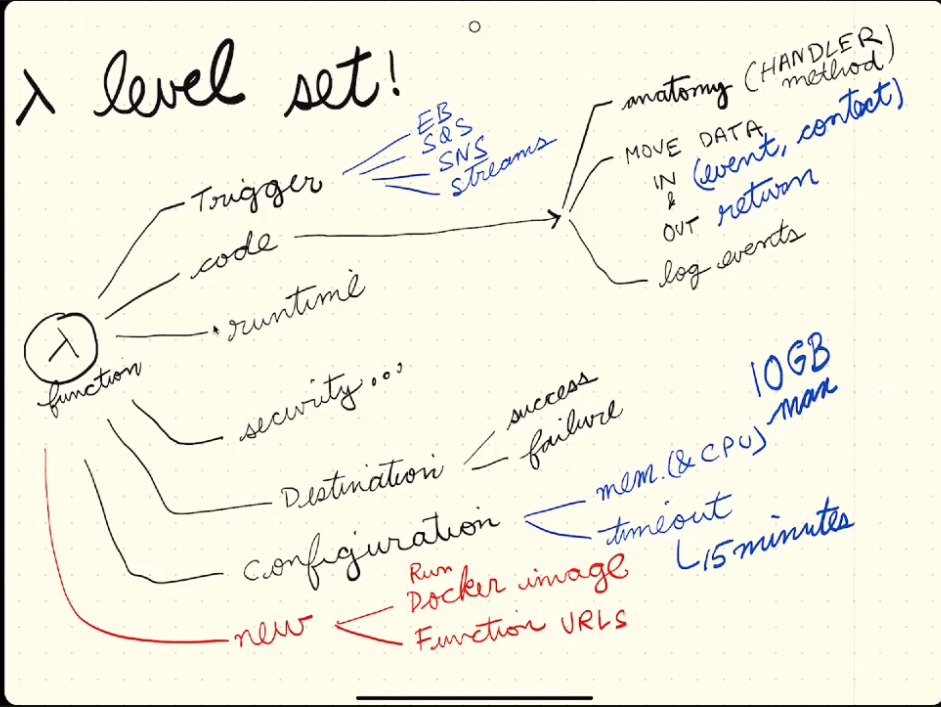 λ level set!
Trigger
EB
SQS
SNS
streams
code
anatomy (HANDLER method)
MOVE DATA
IN (event, context)
&
OUT return
log events
runtime
λ
function
security...
Destination
success
failure
Configuration
mem. (& CPU)
10GB
max
timeout
15 minutes
new
Run
Docker image
Function URLS